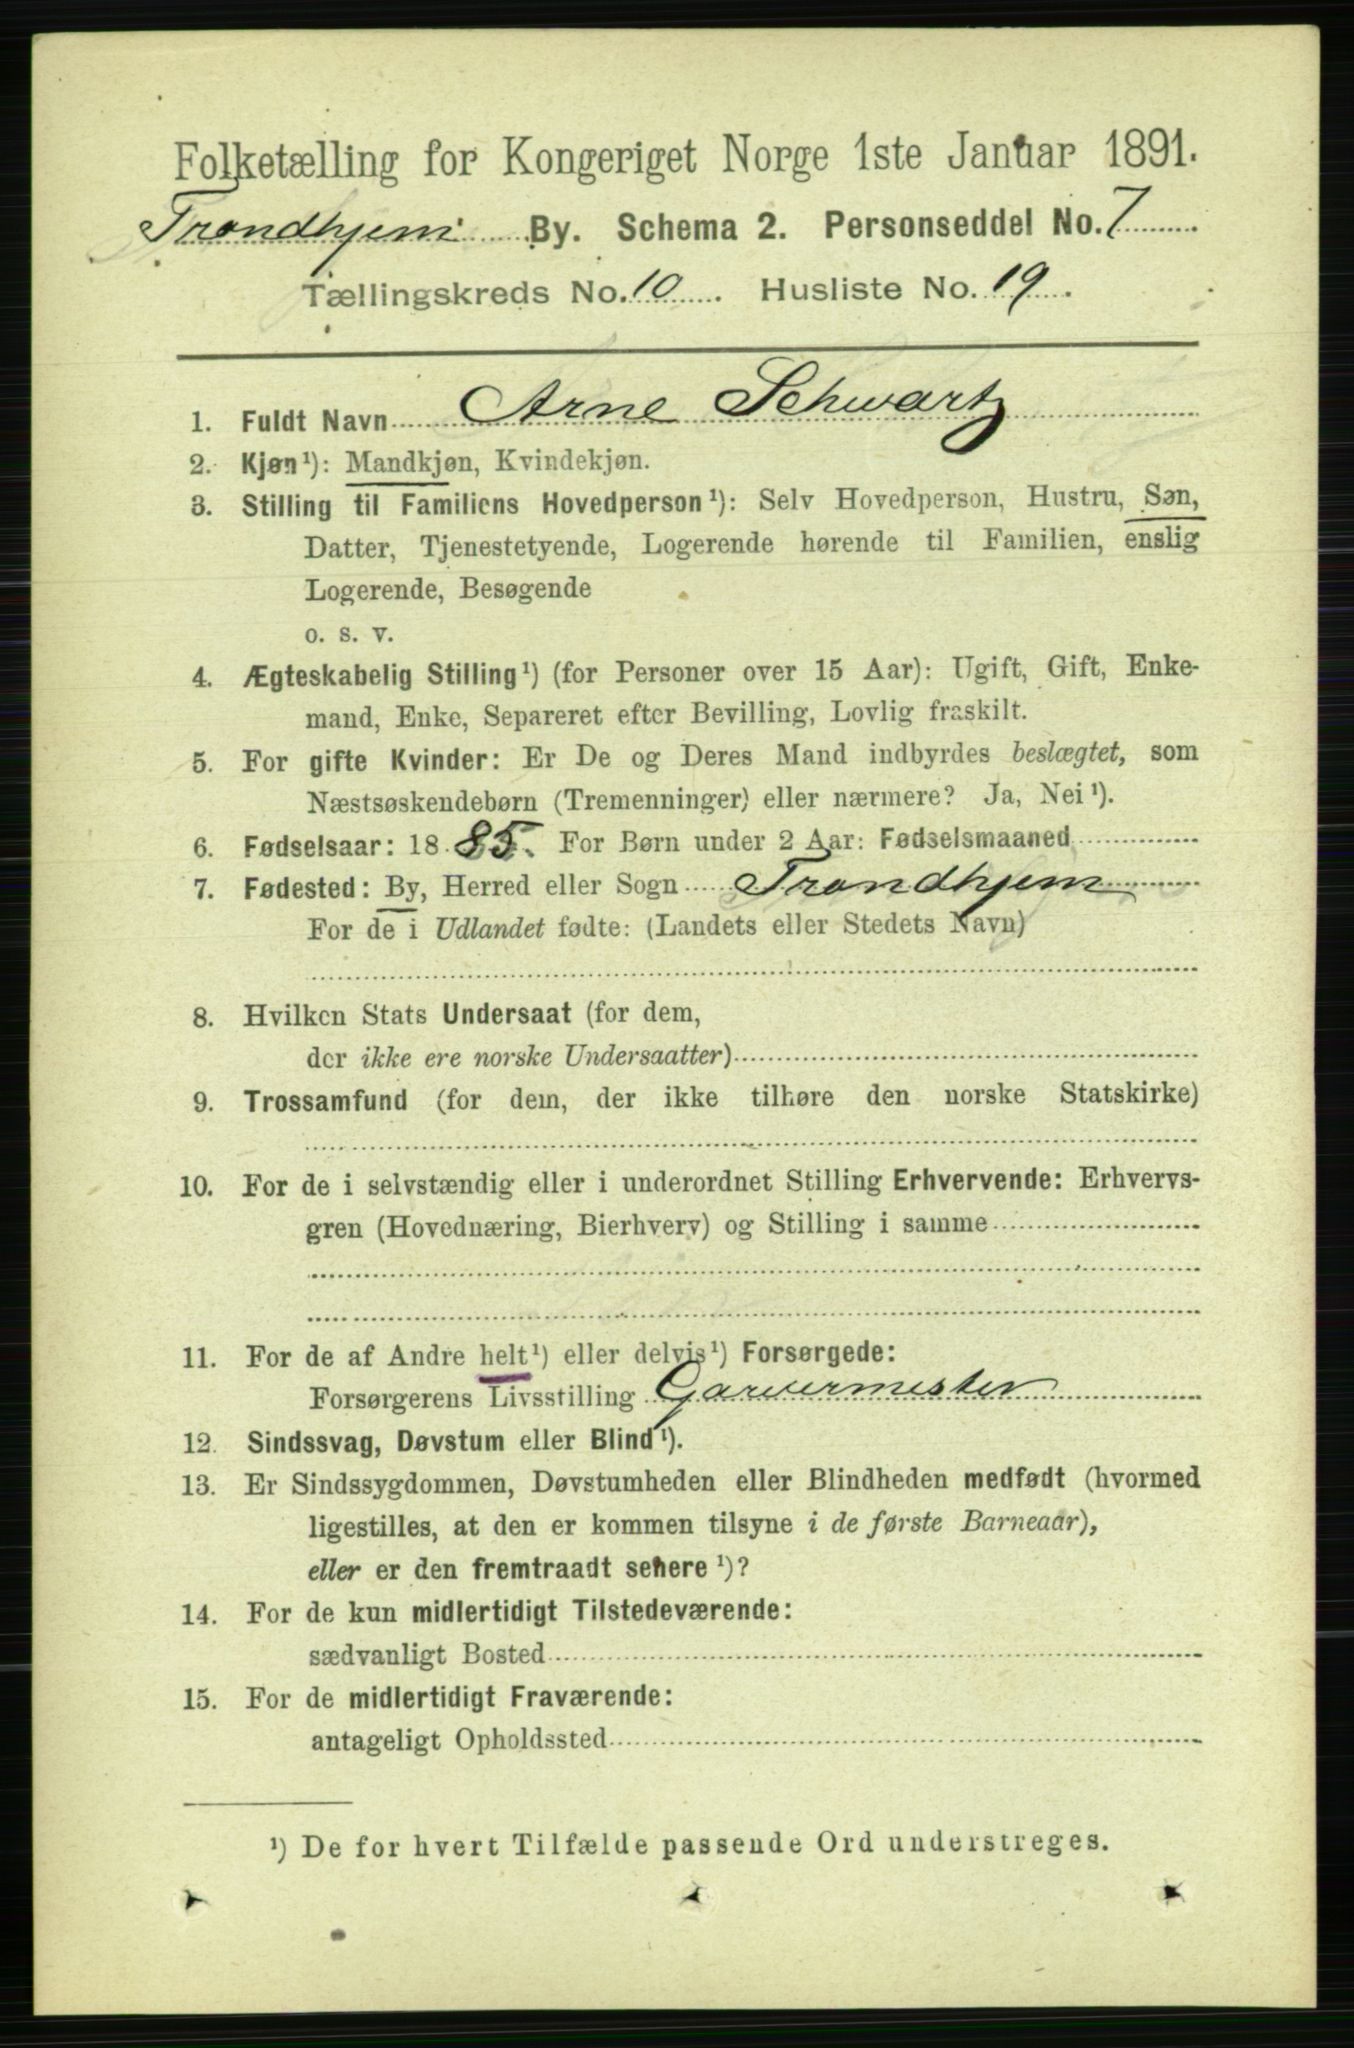 Folketælling for Kongeriget Norge 1ste Januar 1891.
Trondhjem By. Schema 2. Personseddel No. 7
Tællingskreds No. 10. Husliste No. 19.
1. Fuldt Navn Arne Schwartz
2. Kjøn¹): Mandkjøn, Kvindekjøn.
3. Stilling til Familiens Hovedperson¹): Selv Hovedperson, Hustru, Søn,
Datter, Tjenestetyende, Logerende hørende til Familien, enslig
Logerende, Besøgende
o. s. v.
4. Ægteskabelig Stilling¹) (for Personer over 15 Aar): Ugift, Gift, Enke-
mand, Enke, Separeret efter Bevilling, Lovlig fraskilt.
5. For gifte Kvinder: Er De og Deres Mand indbyrdes beslægtet, som
Næstsøskendebørn (Tremenninger) eller nærmere? Ja, Nei¹).
6. Fødselsaar: 1885. For Børn under 2 Aar: Fødselsmaaned
7. Fødested: By, Herred eller Sogn Trondhjem
For de i Udlandet fødte: (Landets eller Stedets Navn)
8. Hvilken Stats Undersaat (for dem,
der ikke ere norske Undersaatter)
9. Trossamfund (for dem, der ikke tilhøre den norske Statskirke)
10. For de i selvstændig eller i underordnet Stilling Erhvervende: Erhvervs-
gren (Hovednæring, Bierhverv) og Stilling i samme
11. For de af Andre helt¹) eller delvis¹) Forsørgede:
Forsørgerens Livsstilling Garvermester
12. Sindssvag, Døvstum eller Blind¹).
13. Er Sindssygdommen, Døvstumheden eller Blindheden medfødt (hvormed
ligestilles, at den er kommen tilsyne i de første Barneaar),
eller er den fremtraadt senere¹)?
14. For de kun midlertidigt Tilstedeværende:
sædvanligt Bosted
15. For de midlertidigt Fraværende:
antageligt Opholdssted
¹) De for hvert Tilfælde passende Ord understreges.